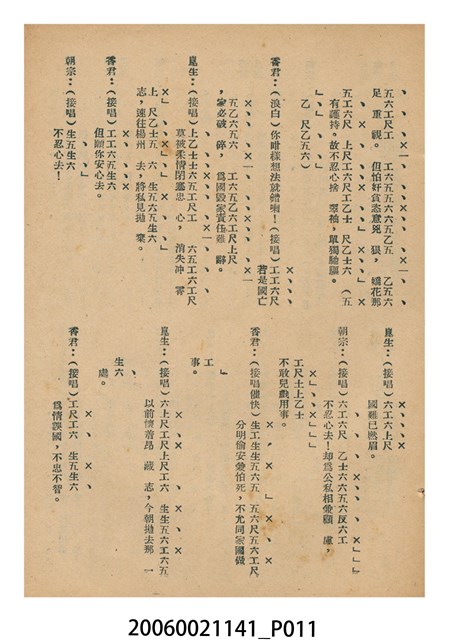 五工六尺工　六工五五六六五乙五　乙五六
足重視。但怕奸貪恣意兇狠，嬌花那
五工六尺　上尺工六尺工乙士　尺乙士六（五
有護持。故不忍心捨翠袖，單獨馳驅。
乙　尺乙五六）
香君：（浪白）你咁樣想法就錯喇！（接唱）工工六尺
若是國亡
五乙六五六　工六五乙六工尺上尺
，家必破碎，爲國毀家責任難辭。
崑生：（接唱）上乙士士五六工尺工　六五工六工尺
莫被柔情閉塞忠心，消失冲霄
上　尺乙士五　六　生五六五生六
志，速往揚州去，將私見拋棄。
香君：（接唱）工工六五生六
但願你安心去。
朝宗：（接唱）生五生六
不忍心去！
崑生：（接唱）六工六上尺
國難已燃眉。
朝宗：（接唱）六工六尺　乙士六六五六反六工
不忍心去！却爲公私相兼顧慮，
工尺士上乙士
不敢兒戲用事。
香君：（接唱催快）生工生生五六五　五六尺五六工尺
分明偷安兼怕死，不尤同家國做
工
事。
崑生：（接唱）六上尺工尺上尺工六　生生五六工六五
以前懷着昂藏志，今朝拋去那一
生六
處。
香君：（接唱）工尺工六　生五生六
爲情誤國，不忠不智。
20060021141_P011